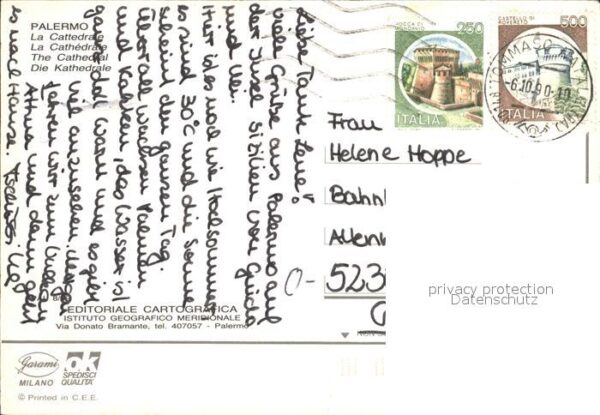 PALERMO
La Cattedrale
La Cathédrale
The Cathedral
Die Kathedrale
Liebe Tante Lene!
viele Grüße aus Palermo auf
der Insel Sizilien von Guida
und Ule.
Hier ist es noch wie Hochsommer
30°C und die Sonne
scheint den ganzen Tag.
Überall wachsen Palmen
und Kakteen, das Wasser ist
ganz toll warm und es gibt
viel anzusehen. Morgen
fahren wir zum
Athna und dann geht
es nach Hause.
ROCCA DI
MONDAVIO
250
ITALIA
CASTELLO DI
ROVERETO
500
ITALIA
-6.10.90-10
Frau
Helene Hoppe
Bahn
Allen
O-
523
EDITORIALE CARTOGRAFICA
ISTITUTO GEOGRAFICO MERIDIONALE
Via Donato Bramante, tel. 407057 - Palermo
Garami
MILANO
ok
SPEDISCI
QUALITÀ
© Printed in C.E.E.
privacy protection
Datenschutz